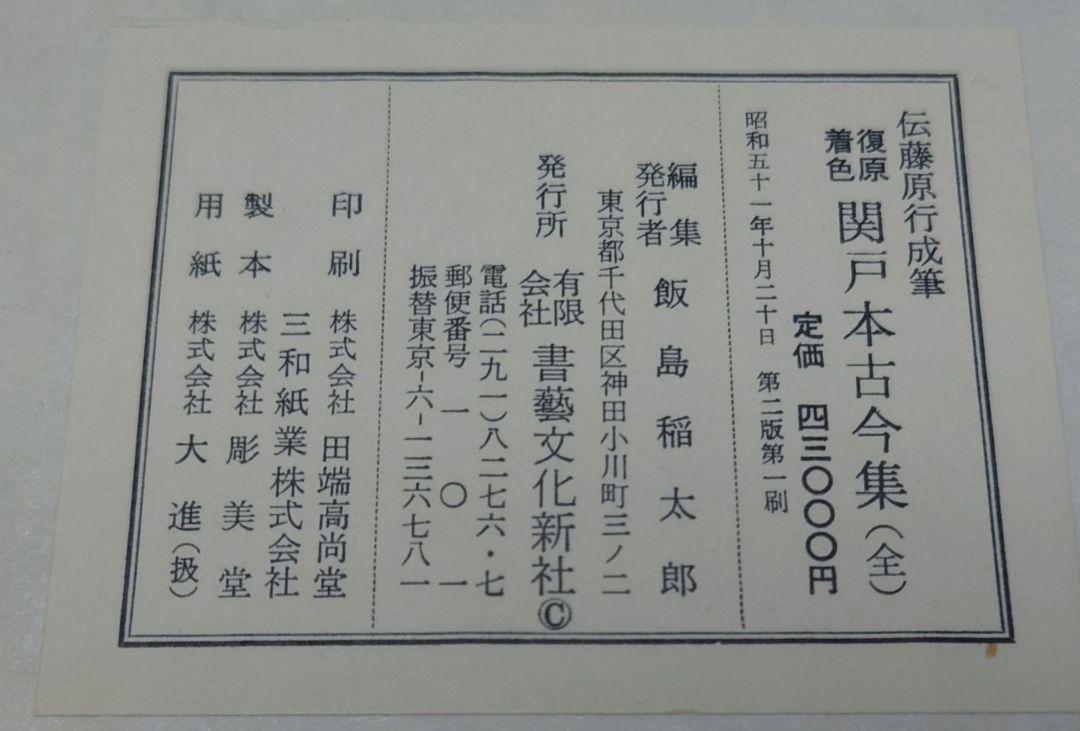 伝藤原行成筆
復原
着色 関戸本古今集(全)
定価 四三〇〇〇円
昭和五十一年十月二十日 第二版第一刷
編集
発行者 飯島稲太郎
東京都千代田区神田小川町三ノ二
発行所 有限会社 書藝文化新社©
電話(二九一)八二七六・七
郵便番号 一〇一
振替東京-六-一三六七八一
印刷 株式会社 田端高尚堂
三和紙業株式会社
製本 株式会社 彫美堂
用紙 株式会社 大進(扱)